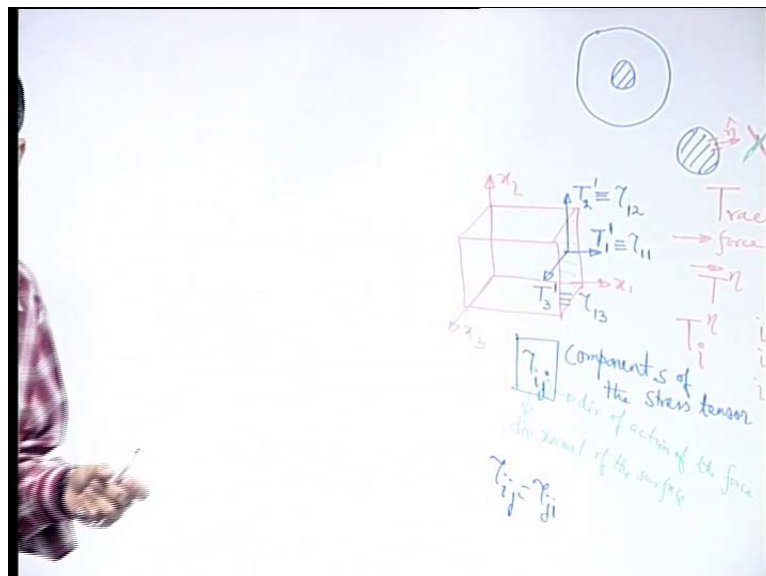 n̂
x₂
T₂¹ ≡ τ₁₂
T₁¹ ≡ τ₁₁
x₁
T₃¹ ≡ τ₁₃
x₃
Trac
force
Tⁿ
Tᵢⁿ
i
i
i
τᵢⱼ Components of
the stress tensor
dir of action of the force
dir normal of the surface
τᵢⱼ = τⱼᵢ